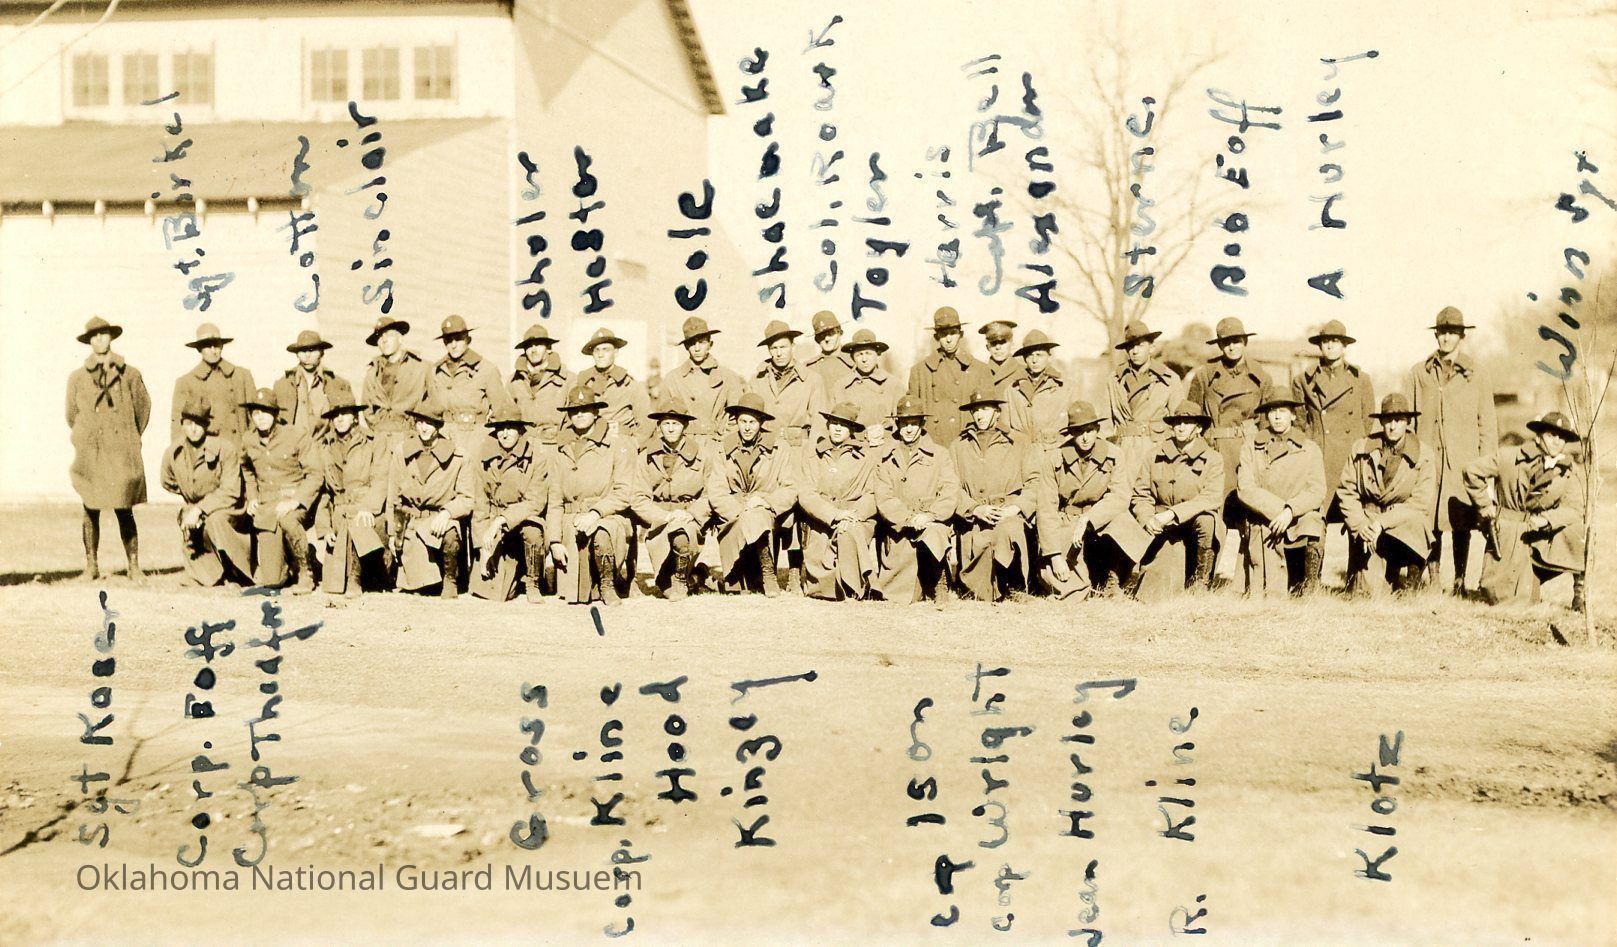 Sgt. Birkel
Cotton
Sinclair
Sholer
Hester
Cole
Shoemake
Col. Roark
Tayler
Harris
Capt. Bell
Alexander
Sterne
Bob Eoff
A Hurley
Winn Sgt
Sgt Kaser
Corp. Eoff
Corp
Gross
Corp. Kline -
Hood
Kinzey
Ison
Corp Wright
Jean Hurley
R. Kline
Klotz
Oklahoma National Guard Musuem